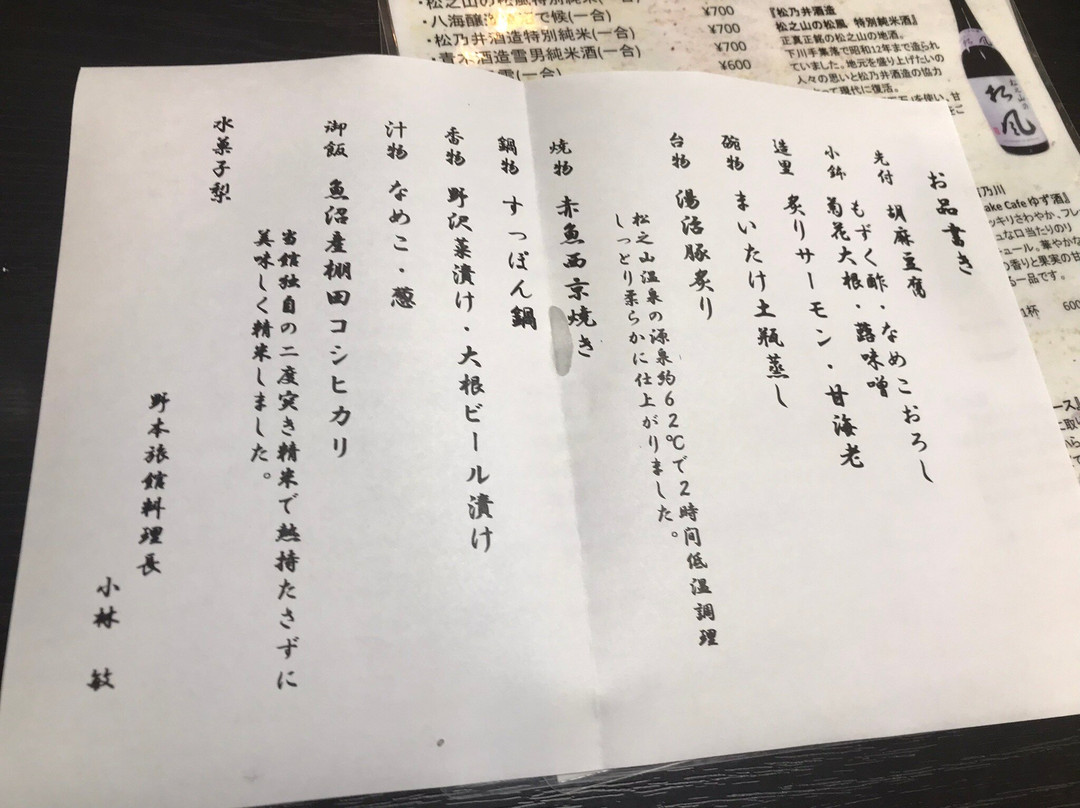 お品書き
先付 胡麻豆腐
もずく酢・なめこおろし
小鉢 菊花大根・蕗味噌
造里 炙りサーモン・甘海老
碗物 まいたけ土瓶蒸し
台物 湯治豚炙り
松之山温泉の源泉約62℃で2時間低温調理
しっとり柔らかに仕上がりました。
焼物 赤魚西京焼き
鍋物 すっぽん鍋
香物 野沢菜漬け・大根ビール漬け
汁物 なめこ・葱
御飯 魚沼産棚田コシヒカリ
当館独自の二度突き精米で熱持たさずに
美味しく精米しました。
水菓子梨
野本旅館料理長
小林 敏
・八海醸造
で候(一合) ¥700
・松乃井酒造特別純米(一合) ¥700
・青木酒造雪男純米酒(一合) ¥700
(一合) ¥600
『松乃井酒造
松之山の松風 特別純米酒』
正真正銘の松之山の地酒。
下川手集落で昭和12年まで造られ
ていました。地元を盛り上げたいの
人々の思いと松乃井酒造の協力
って現代に復活。
を使い、甘
松風
乃川
ake Cafe ゆず酒』
ッキリさわやか、フレ
ュな口当たりのリ
ュール。華やかな
の香りと果実の甘
る一品です。
1杯 600
ース』